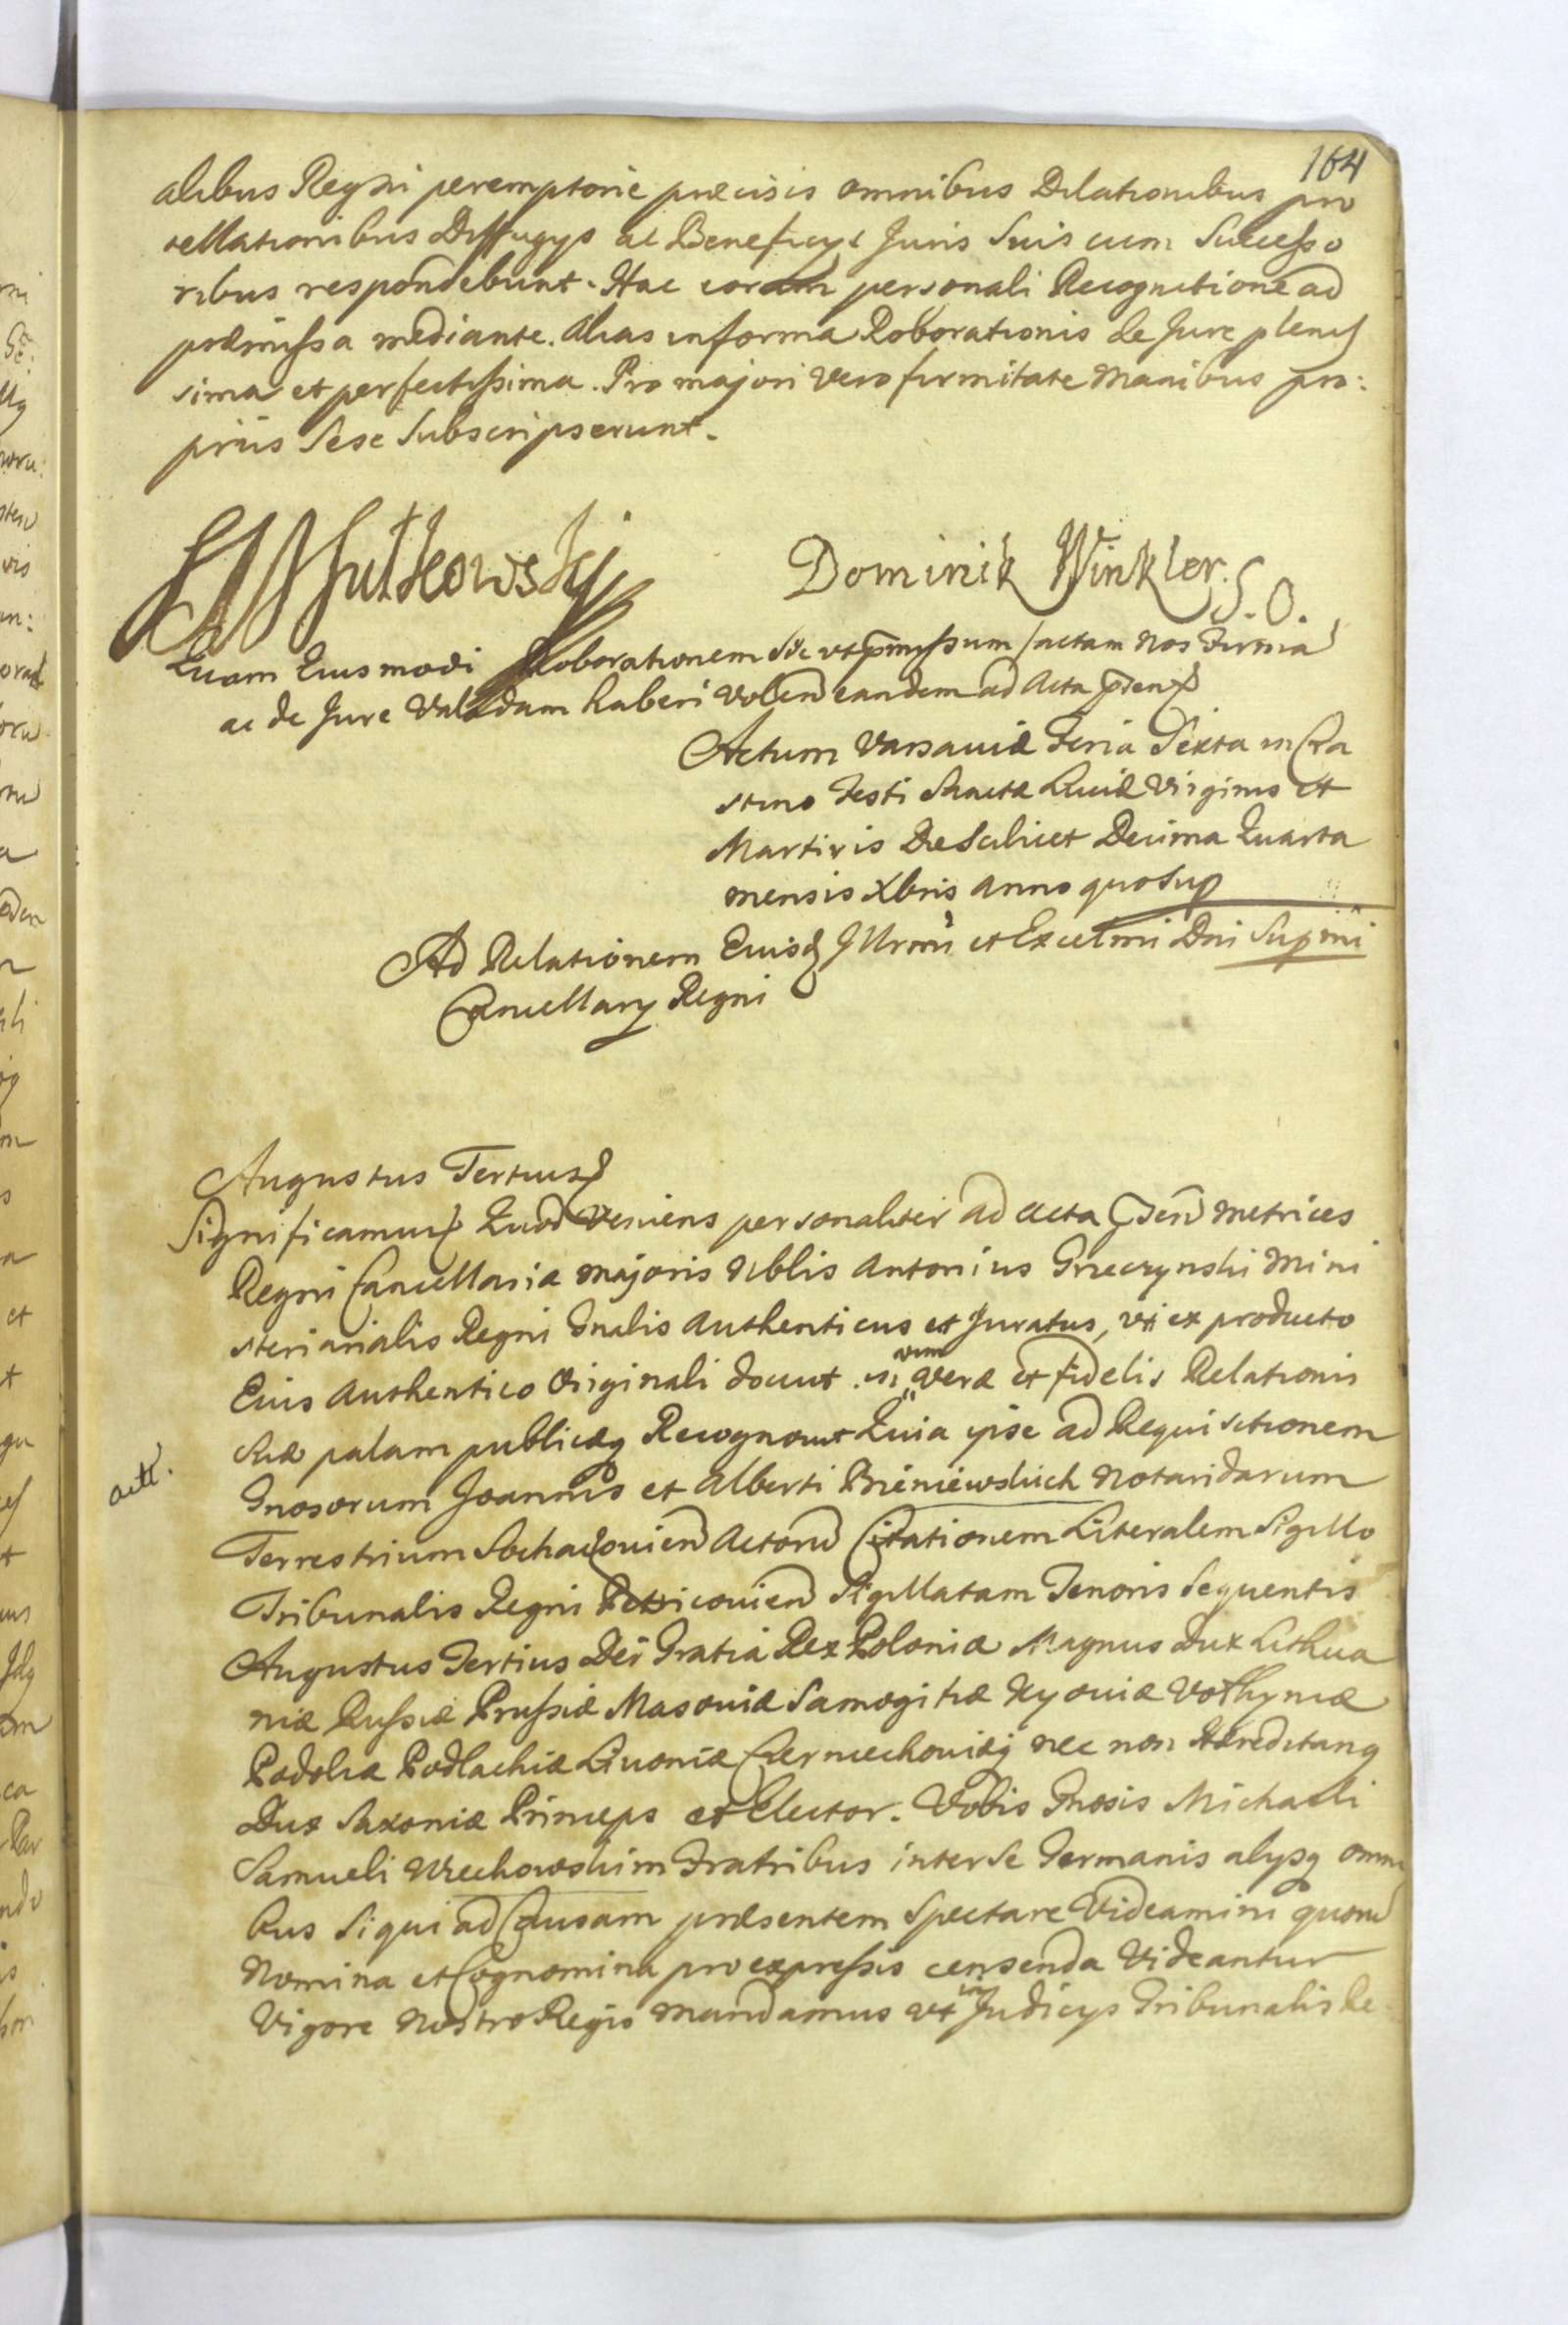 164
alibus Regni peremptorie præcisis omnibus Dilationibus pro
tellationibus Diffugys ac Beneficys Juris Suis cum Successo
ribus respondebunt. Hac coram personali Recognitione ad
præmissa mediante. Alias in forma Roborationis de Jure plenis
sima et perfectissima. Pro majori vero firmitate Manibus pro:
priis Sese Subscripserunt.
Dominik Winkler. S. O.
Quam Eiusmodi Roborationem Sic ut præmissum factam Nos Firma
ac de Jure Validam haberi volen eandem ad Acta præsen
Actum Varsaviæ Feria Sexta in Cra
stino Festi Sanctæ Luciæ Virginis et
Martiris Die Scilicet Decima Quarta
mensis Xbris Anno quo Sup
Ad Relationem Eiusd Illrmi et Excelmi Dni Supmi
Cancellary Regni
Augustus Tertius
Significamus Quod Veniens personaliter ad acta præsen Metrices
Regni Cancellariæ Majoris Nblis Antonius Grzeczynski Mini
sterialis Regni Gnalis Authenticus et Juratus, uti ex producto
Eius Authentico Originali docuit. in vim veræ et fidelis Relationis
Suæ palam publiceq Recognovit Quia ipse ad Requisitionem
actt.
Gnosorum Joannis et Alberti Bieniewskich Notaridarum
Terrestrium Sochaczovien Actoru Citationem Literalem Sigillo
Tribunalis Regni Petricovien Sigillatam Tenoris Sequentis
Augustus Tertius Dei Gratia Rex Poloniæ Magnus Dux Lithua
niæ Russiæ Prussiæ Masoviæ Samogitiæ Kyoviæ Volhyniæ
Podoliæ Podlachiæ Livoniæ Czerniechoviæq nec non Hæreditarig
Dux Saxoniæ Princeps et Elector. Vobis Gnosis Michaeli
Samueli Wiechowskim Fratribus inter Se Germanis alysq omni
bus Siqui ad Causam præsentem Spectare Videamini quoru
Nomina et Cognomina pro expressis censenda Videantur
Vigore Nostro Regio Mandamus ut in Judicys Tribunalis Re